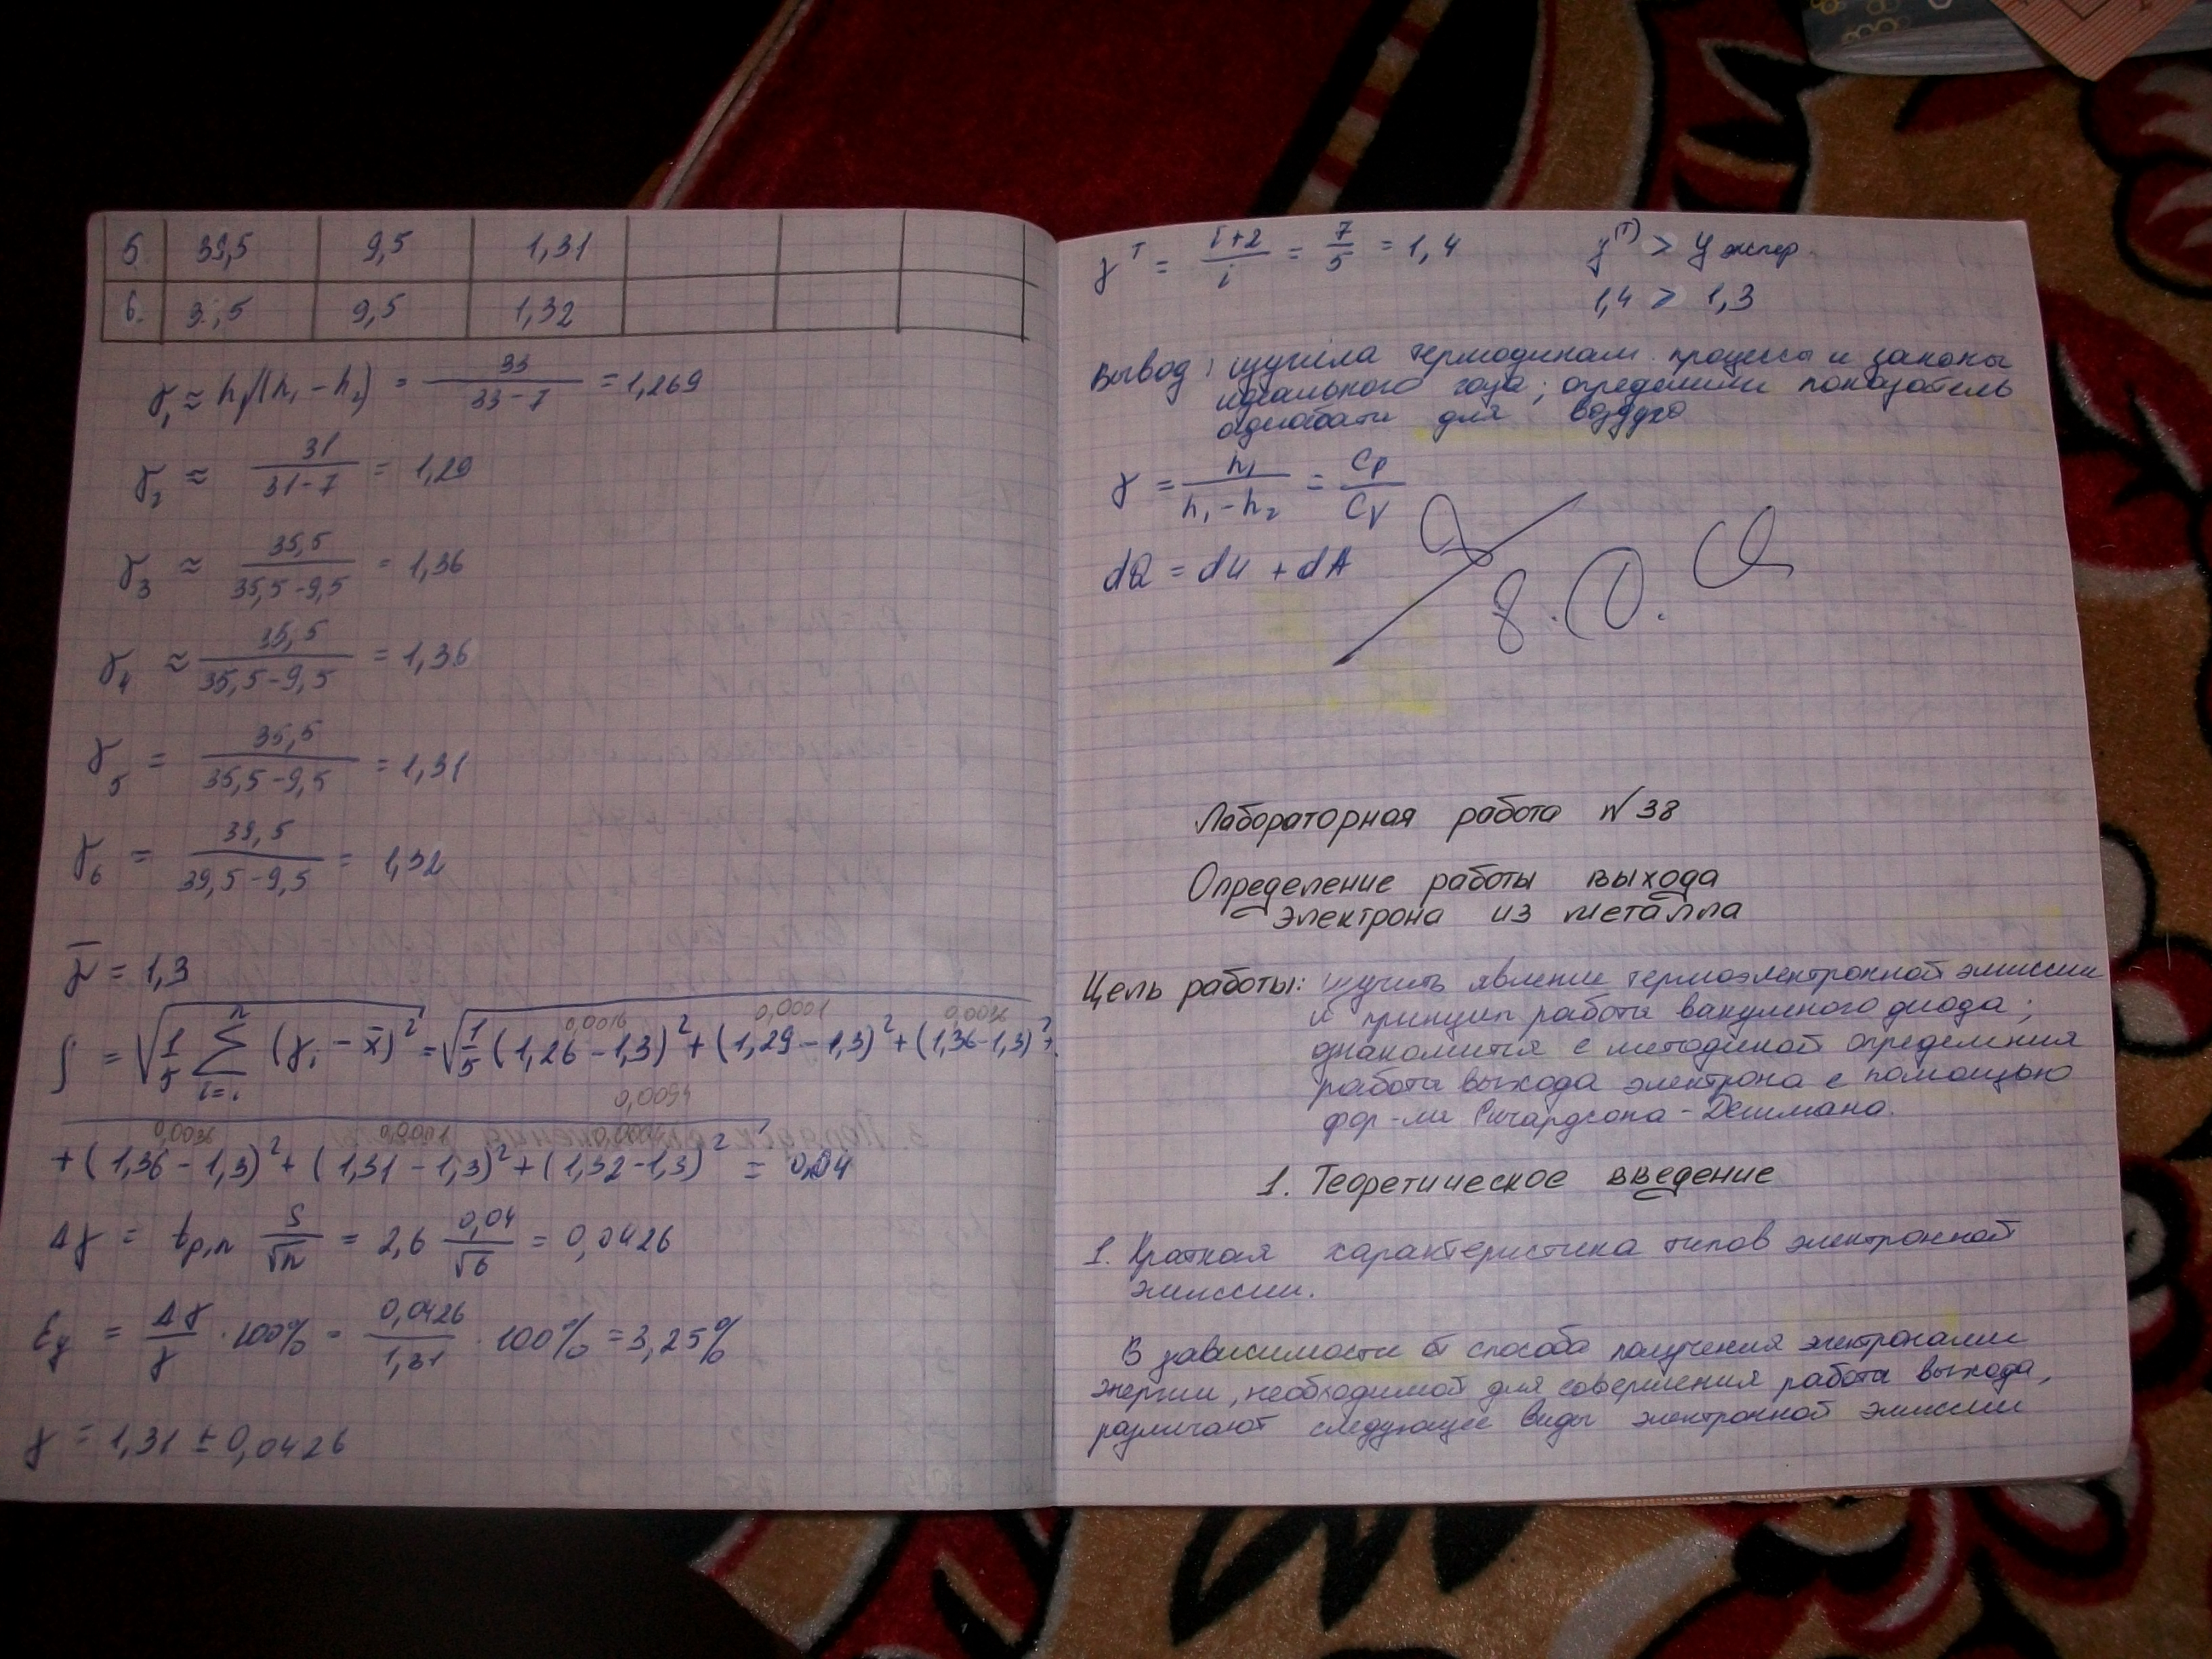 5 39,5 9,5 1,31
6. 9,5 1,32
γ₁ ≈ h₁/(h₁ - h₂) = 33/(33-7) = 1,269
γ₂ ≈ 31/(31-7) = 1,29
γ₃ ≈ 35,5/(35,5-9,5) = 1,36
γ₄ ≈ 35,5/(35,5-9,5) = 1,36
γ₅ = 35,5/(35,5-9,5) = 1,31
γ₆ = 39,5/(39,5-9,5) = 1,32
γ̅ = 1,3
0,0016 0,0001 0,0036
S = √(1/5 Σ (γᵢ - x̄)²) = √1/5 (1,26-1,3)² + (1,29-1,3)² + (1,36-1,3)² +
0,0094
0,0036 0,0001 0,0004
+ (1,36-1,3)² + (1,31-1,3)² + (1,32-1,3)² = 0,04
Δγ = tp,n S/√n = 2,6 0,04/√6 = 0,0426
Eγ = Δγ/γ · 100% = 0,0426/1,31 · 100% = 3,25%
γ = 1,31 ± 0,0426
γᵀ = (i+2)/i = 7/5 = 1,4 γ⁽ᵀ⁾ > γ экспер.
1,4 > 1,3
Вывод: изучила термодинам. процессы и законы
идеального газа; определили показатель
адиабаты для воздуха
γ = h₁/(h₁-h₂) = Cp/CV
dQ = dU + dA
Лабораторная работа №38
Определение работы выхода
электрона из металла
Цель работы: изучить явление термоэлектронной эмиссии
и принцип работы вакумного диода;
ознакомится с методикой определения
работы выхода электрона с помощью
фор-лы Ричардсона-Дешмана.
1. Теоретическое введение
1. Краткая характеристика типов электронной
эмиссии.
В зависимости от способа получения электронами
энергии, необходимой для совершения работы выхода,
различают следующее виды электронной эмиссии